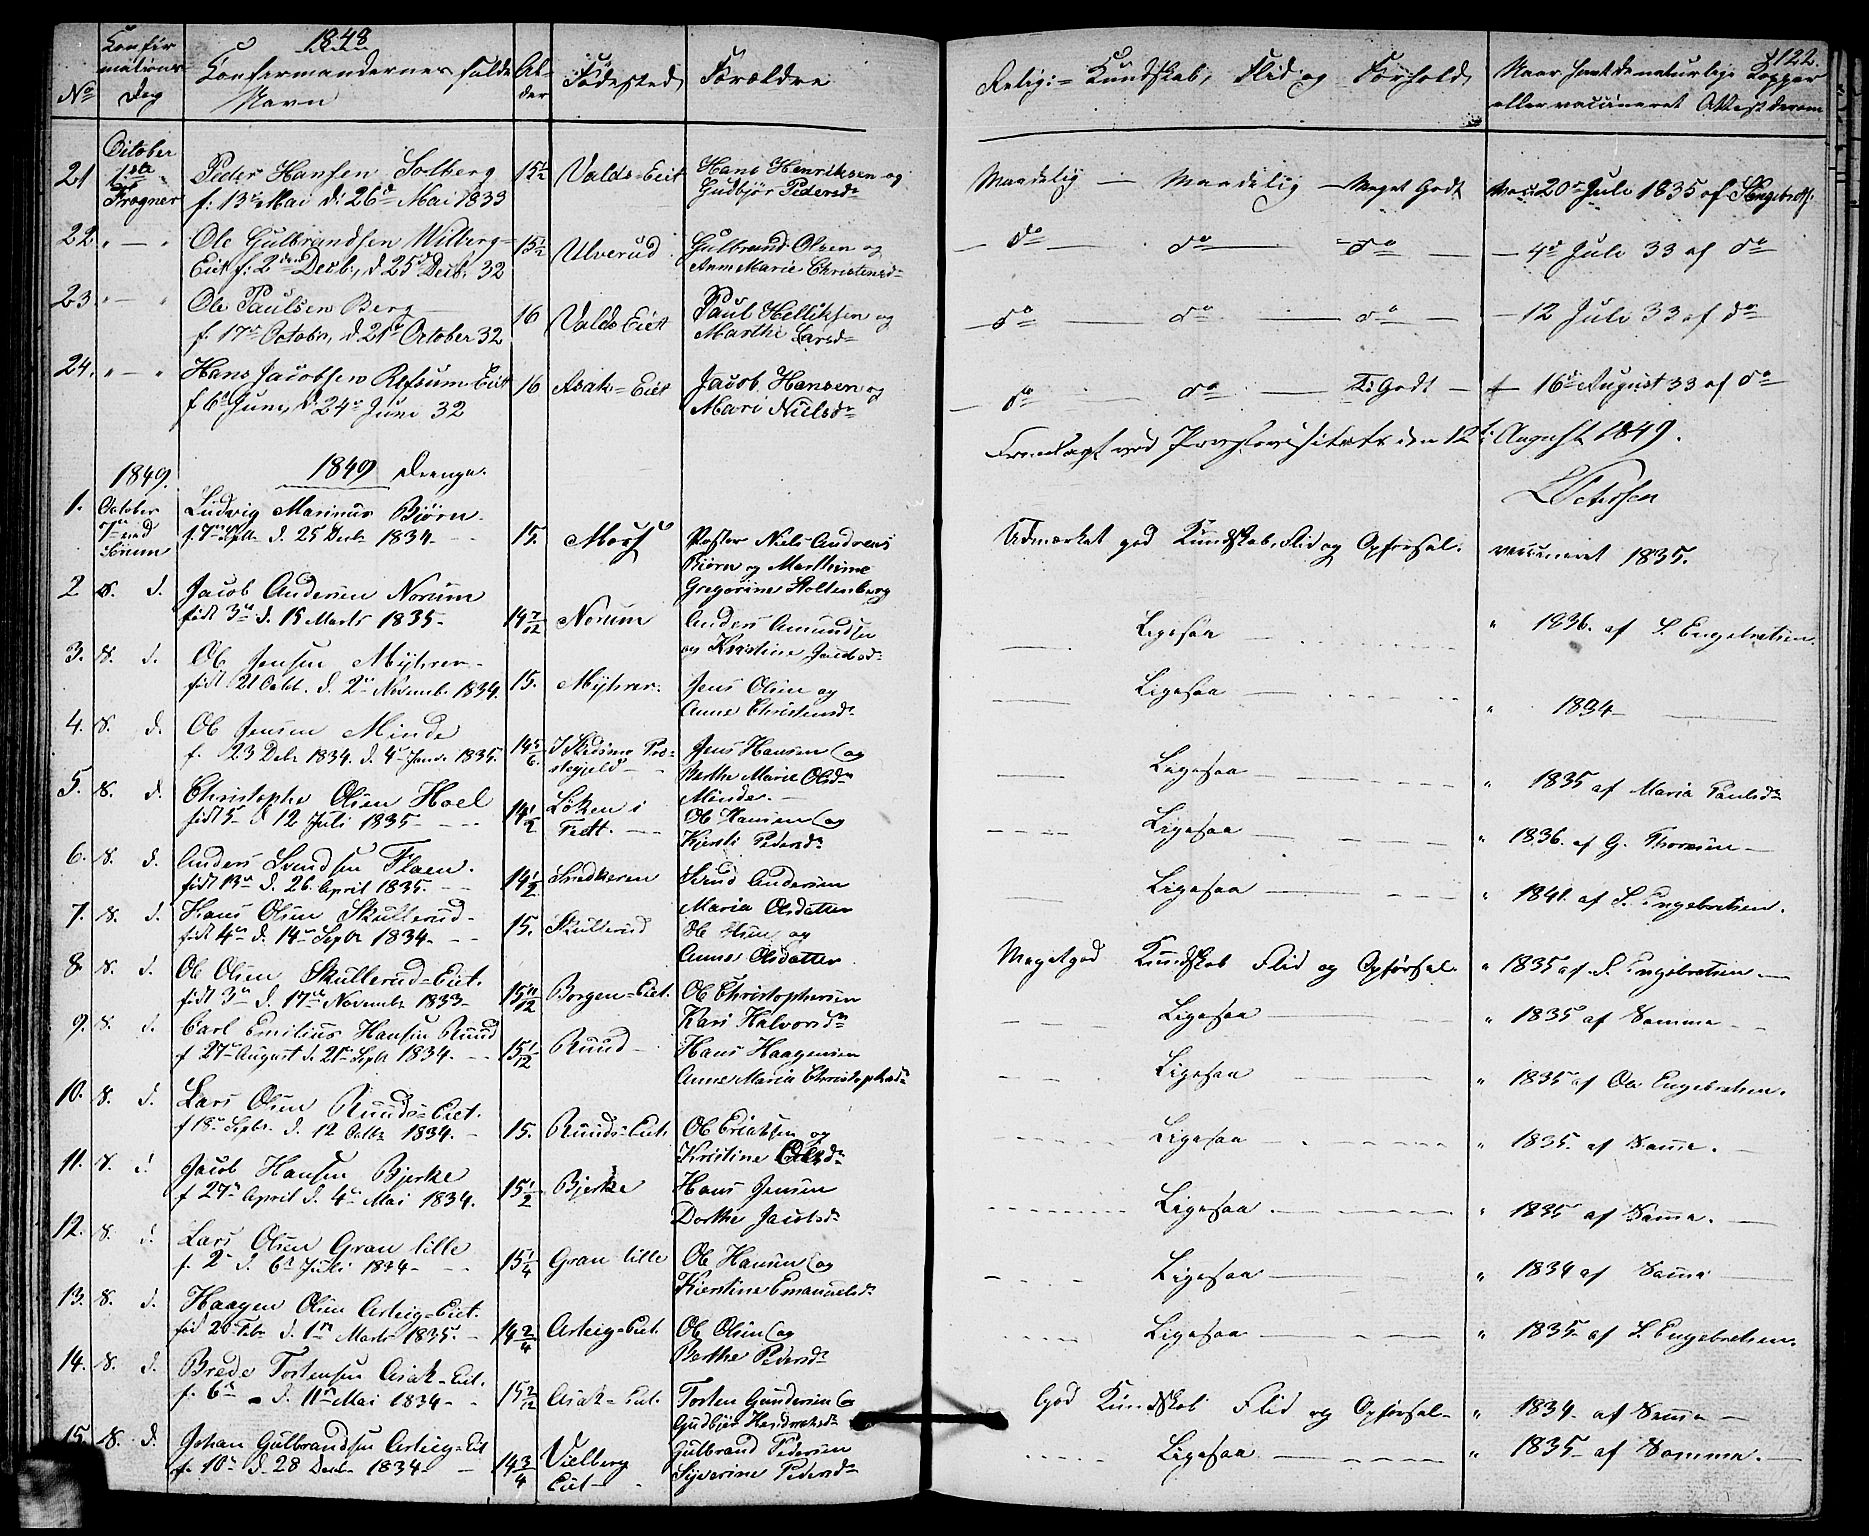 1848
122.
No
Confirmations Dag
Confirmandernes fulde Navn
Alder
Fødested
Forældre
Religi= Kundskab, Flid og Forhold
Naar havt de naturlige Kopper
eller vaccineret Attest derom
October
21 1ste Frogner
Peder Hansen Solberg
f: 13de Mai d: 26de Mai 1833
15½ Valds=Eiet
Hans Henriksen og
Gudbjør Pedersdr
Maadelig — Maadelig — Meget Godt
vac: 20de Juli 1835 af S Engebretsen
22 " — "
Ole Gulbrandsen Wilberg=
Eiet f: 2den Decb:, d 25de Decb. 32
15½ Ulverud
Gulbrand Olsen og
Anne Marie Christensd=
— do — do — do —
— 4de Juli 33 af do
23 " — "
Ole Paulsen Berg
f. 17de Octobr, d 21de October 32
16 Valds Eiet
Paul Helliksen og
Marthe Larsd=
— do — do — do —
— 12 Juli 33 af do
24. " — "
Hans Jacobsen Refsum=Eiet
f 6de Juni, d: 24de Juni 32
16 Asak=Eiet
Jacob Hansen og
Mari Nielsdr
— do — do — Ts Godt —
— 16de August 33 af do
Fremlagt ved Provstevisitats den 12te August 1849.
1849.
1849 Drenge.
1. October 7de ved Sørum
Ludvig Marinus Bjørn
f. 7de Septb. d. 25 Decbr 1834
15. Moss
Pastor Niels Andreas
Bjørn og Marthine
Gregorine Stoltenberg
Udmærket god Kundskab, Flid og Opførsel.
vaccineret 1835.
2 s. d.
Jacob Andersen Norum
født 3de d. 15 Marts 1835
14 7/12 Norum
Anders Amundsen
og Kristine Jacobsd=
Ligesaa
" 1836. af S. Engebretsen.
3. s. d.
Ole Jensen Myhrer
født 21 Octbr. d. 2de Novembr 1834.
15. Myhrer.
Jens Olsen og
Anne Christensdr
Ligesaa
" 1834
4. s. d.
Ole Jensen Minde
f. 23 Debr 1834. d. 4de Janr. 1835.
14 5/6 I Skedsmo Præ-
stegjeld
Jens Hansen og
Berthe Marie Olsdr
Minde.
Ligesaa
" 1835 af Maria Paulsdr
5. s. d.
Christopher Olsen Hoel
født 5 d 12 Juli 1835
14½ Løken i
Fedt.
Ole Hansen og
Kjersti Pedersdr
Ligesaa
" 1836. af G. Thoresen
6. s. d.
Anders Svendsen Floen.
født 13de d. 26. April 1835.
14½ Snedkeren
Svend Andersen
Maria Olsdatter
Ligesaa
" 1841. af S. Engebretsen.
7. s. d.
Hans Olsen Skullerud
født 4de d. 14de Septbr 1834
15. Skullerud
Ole Olsen og
Anne Olsdatter
Meget god Kundskab Flid og Opførsel
" 1835 af S. Engebretsen.
8. s. d.
Ole Olsen Skullerud=Eiet.
født 3de d. 17de Novembr 1833
15 11/12 Borgen=Eiet.
Ole Christophersen
Kari Halvorsdr
Ligesaa
" 1835 af Samme
9. s. d.
Carl Emilius Hansen Ruud
f 27de August d. 21de Septbr 1834.
15 1/12 Ruud
Hans Haagensen
Anne Maria Christophersdr
Ligesaa
" 1835 af Ole Engebretsen.
10. s. d.
Lars Olsen Ruuds=Eiet.
f 18de Septbr. d. 12 Octbr 1834.
15. Ruuds=Eiet.
Ole Eriksen og
Kristine Olsdr
Ligesaa
" 1835. af Samme.
11. s. d.
Jacob Hansen Bjerke
f 27de April d. 4de Mai 1834.
15½ Bjerke
Hans Jensen
Dorthe Jacobsdr
Ligesaa.
" 1835 af Samme.
12. s. d.
Lars Olsen Gran lille
f. 2de d. 6de Juli 1834
15¼ Gran lille
Ole Hansen og
Kierstine Emanuelsdr
Ligesaa
" 1834 af Samme
13. s. d.
Haagen Olsen Asteig=Eiet.
fød 20de Febr d. 1ste Marts 1835.
14 2/4 Asteig=Eiet.
Ole Olsen og
Berthe Pedersdr
Ligesaa
" 1835 af S. Engebretsen.
14. s. d.
Brede Torstensen Asak=Eiet.
f. 6de d. 11de Mai 1834
15 2/12 Asak=Eiet.
Torsten Gundersen og
Gudbjør
God Kundskab Flid og Opførsel
" 1834. af Samme
15. s. d.
Johan Gulbrandsen Asteig=Eiet
f. 10de d. 28 Decbr 1834
14¾ Vielberg
Eiet
Gulbrand Pedersen
Syverine Pedersdr
Ligesaa
" 1835 af Samme.